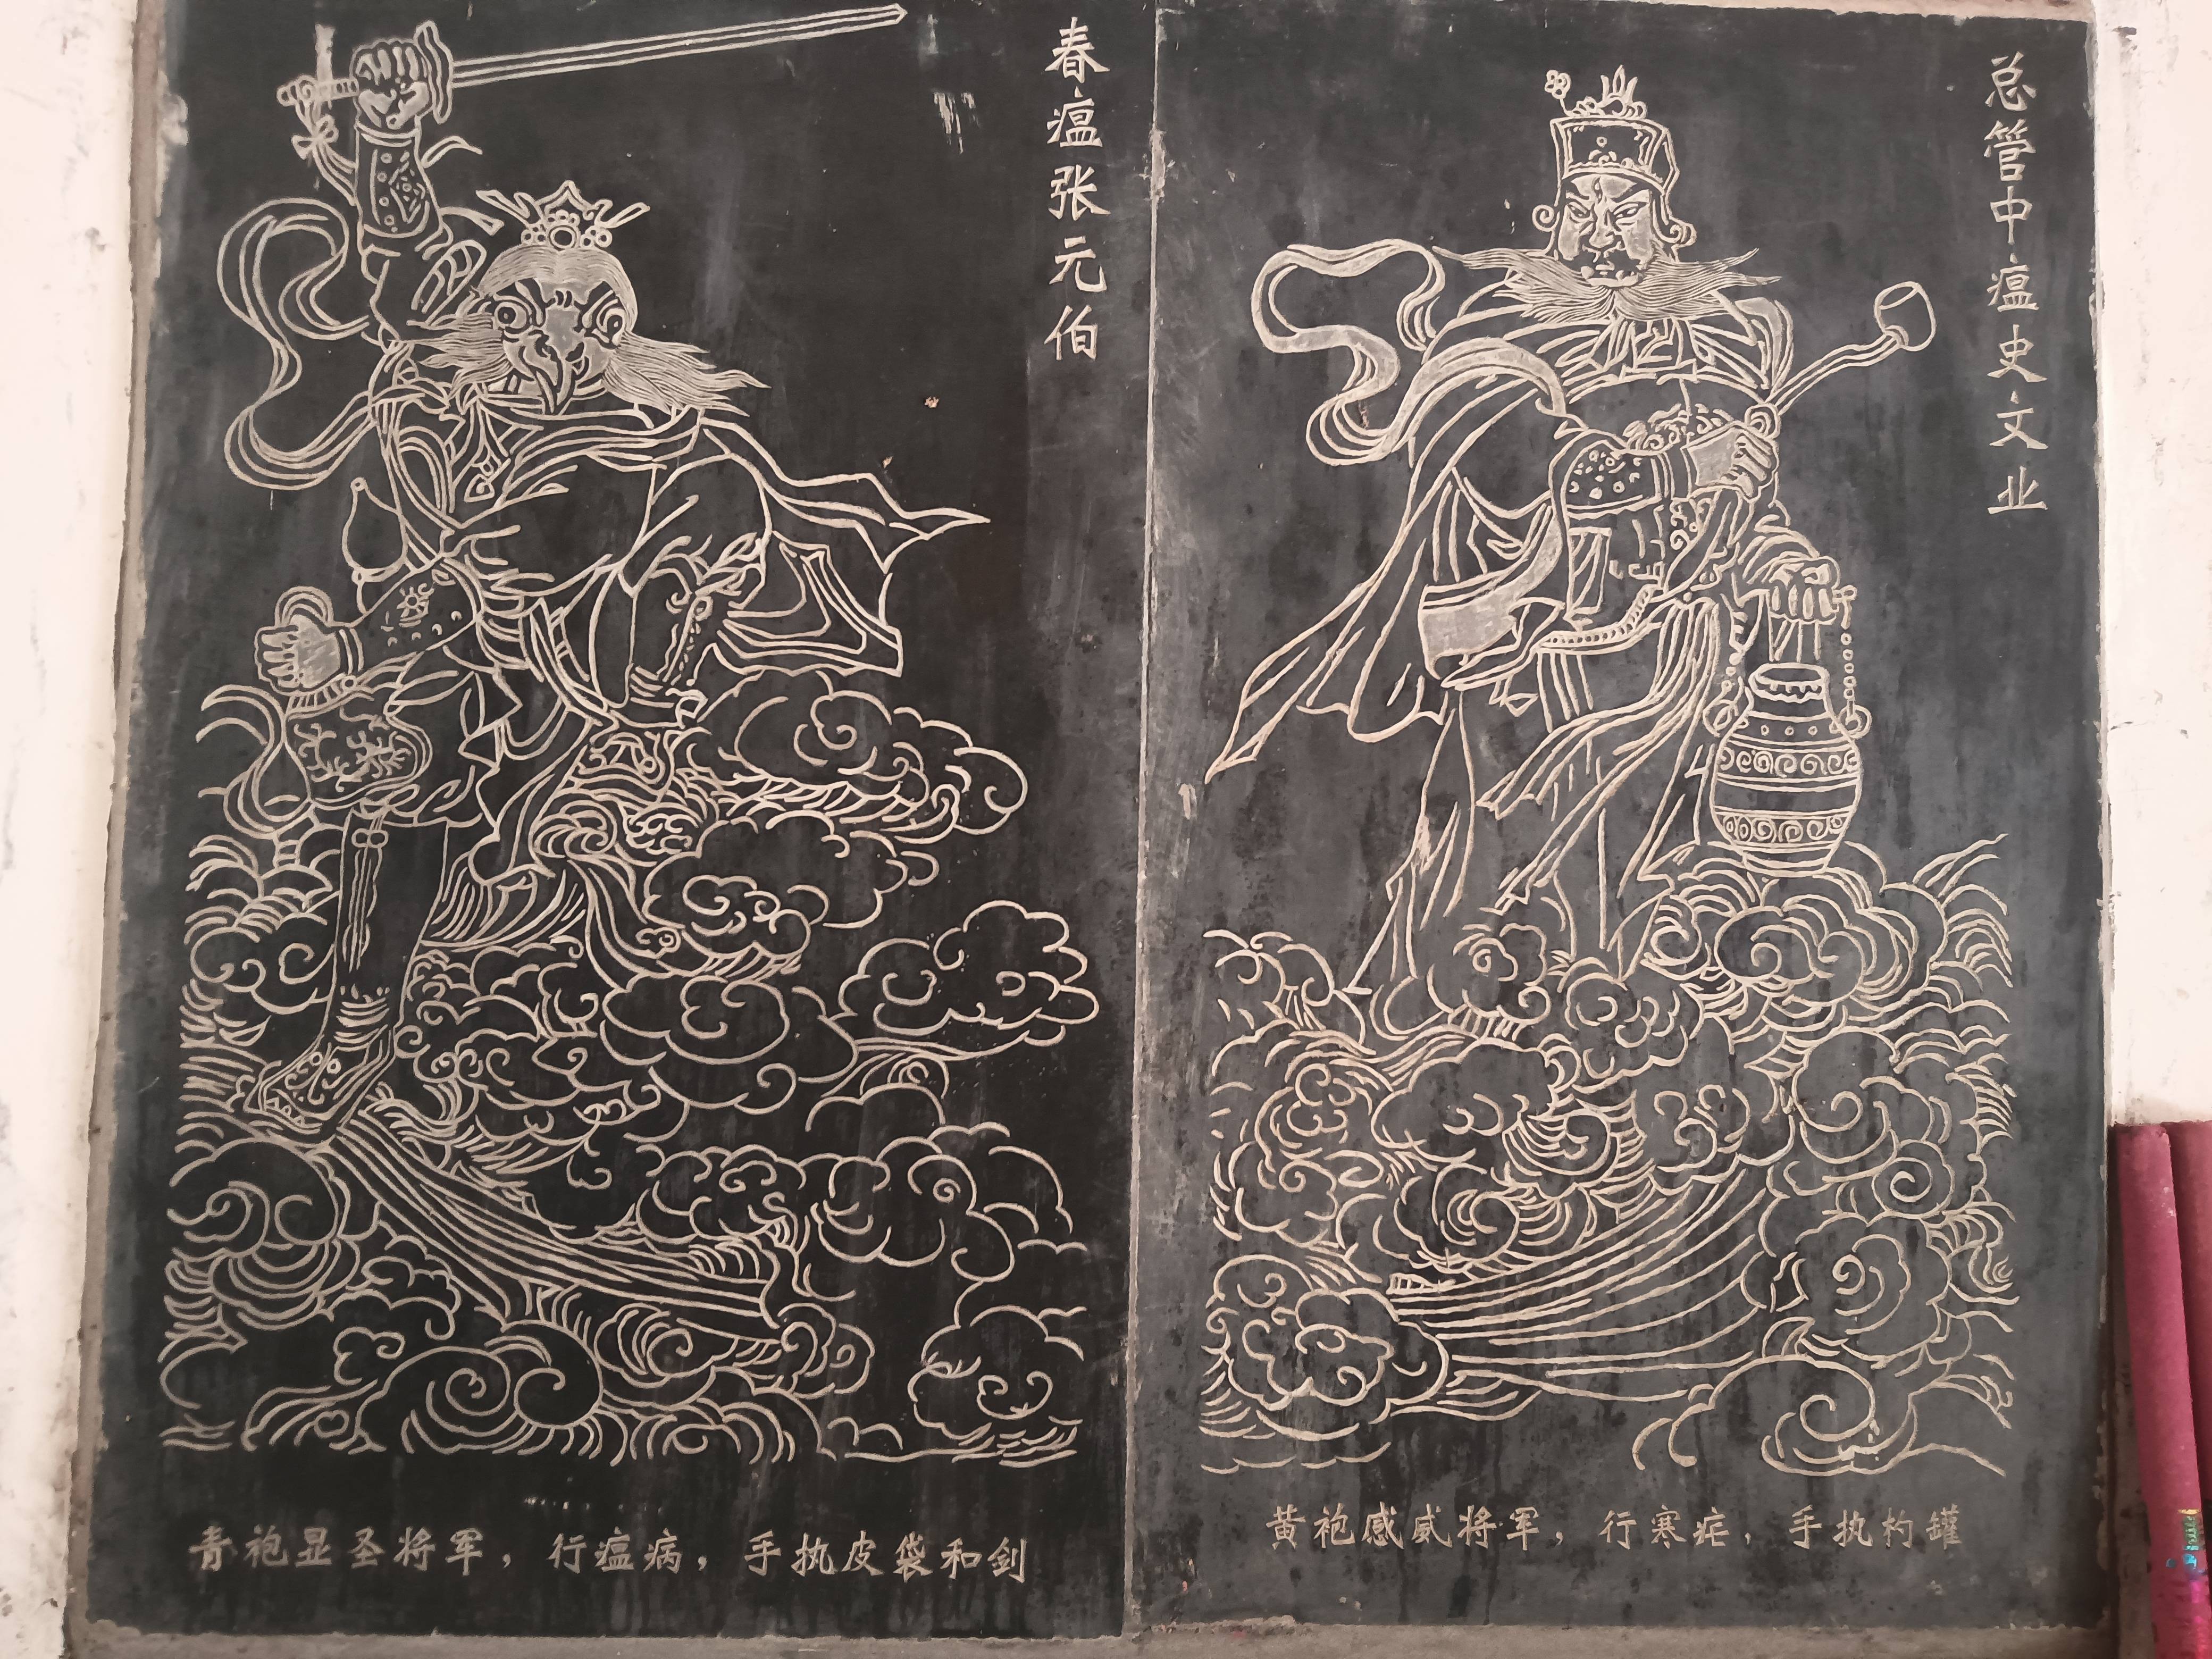 春瘟张元伯
青袍显圣将军，行瘟病，手执皮袋和剑
总管中瘟史文业
黄袍感威将军，行寒症，手执杓罐